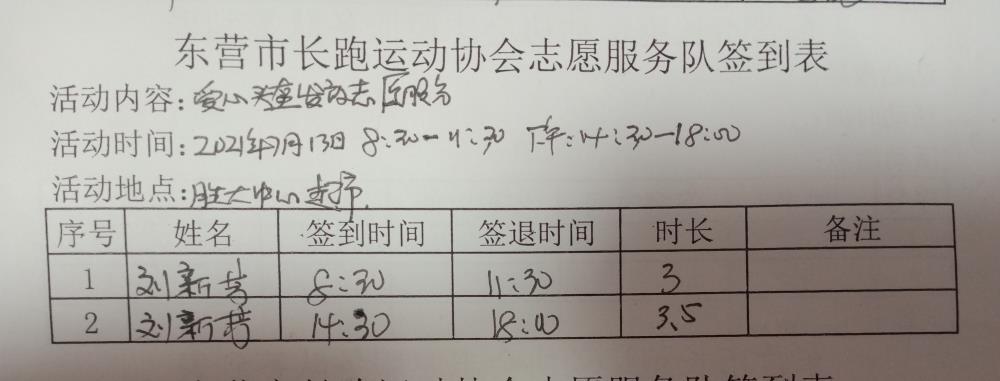 东营市长跑运动协会志愿服务队签到表
活动内容:爱心 志愿服务
活动时间:2021年7月13日 8:30-11:30 下午:14:30-18:00
活动地点:胜大中心
序号 姓名 签到时间 签退时间 时长 备注
1 刘新 8:30 11:30 3
2 刘新 14:30 18:00 3.5